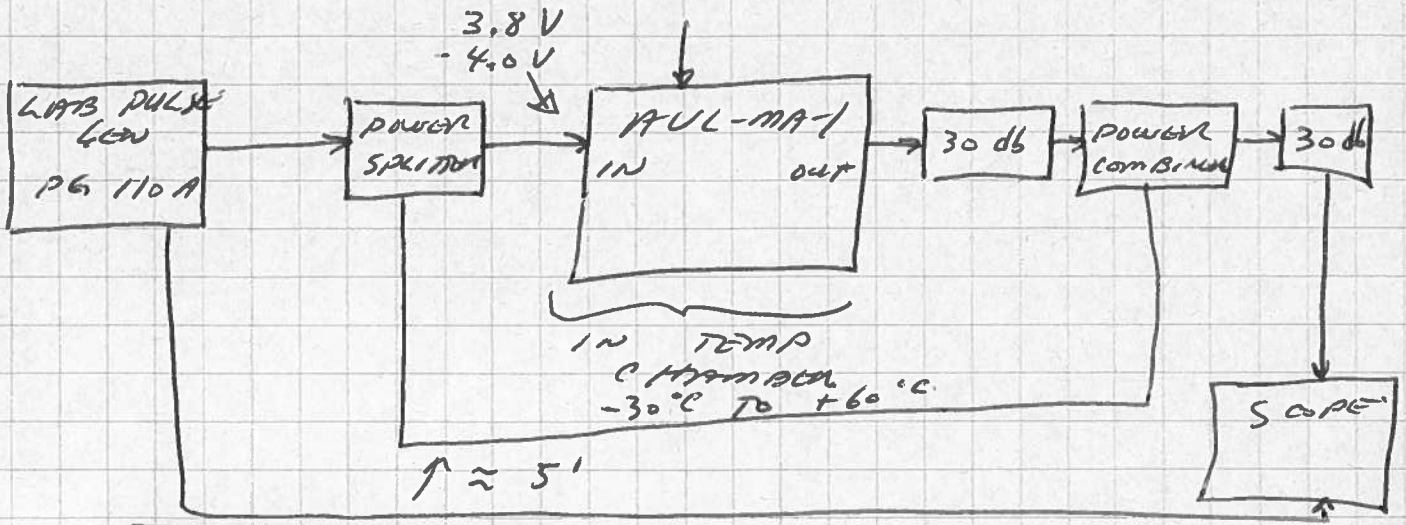 3.8 V
-4.0 V
LAB PULSE
GEN
PG 110 A
POWER
SPLITTER
AVL-MA-1
IN OUT
30 db
POWER
COMBINER
30 db
IN TEMP
CHAMBER
-30°C TO +60°C
SCOPE
↑ ≈ 5'